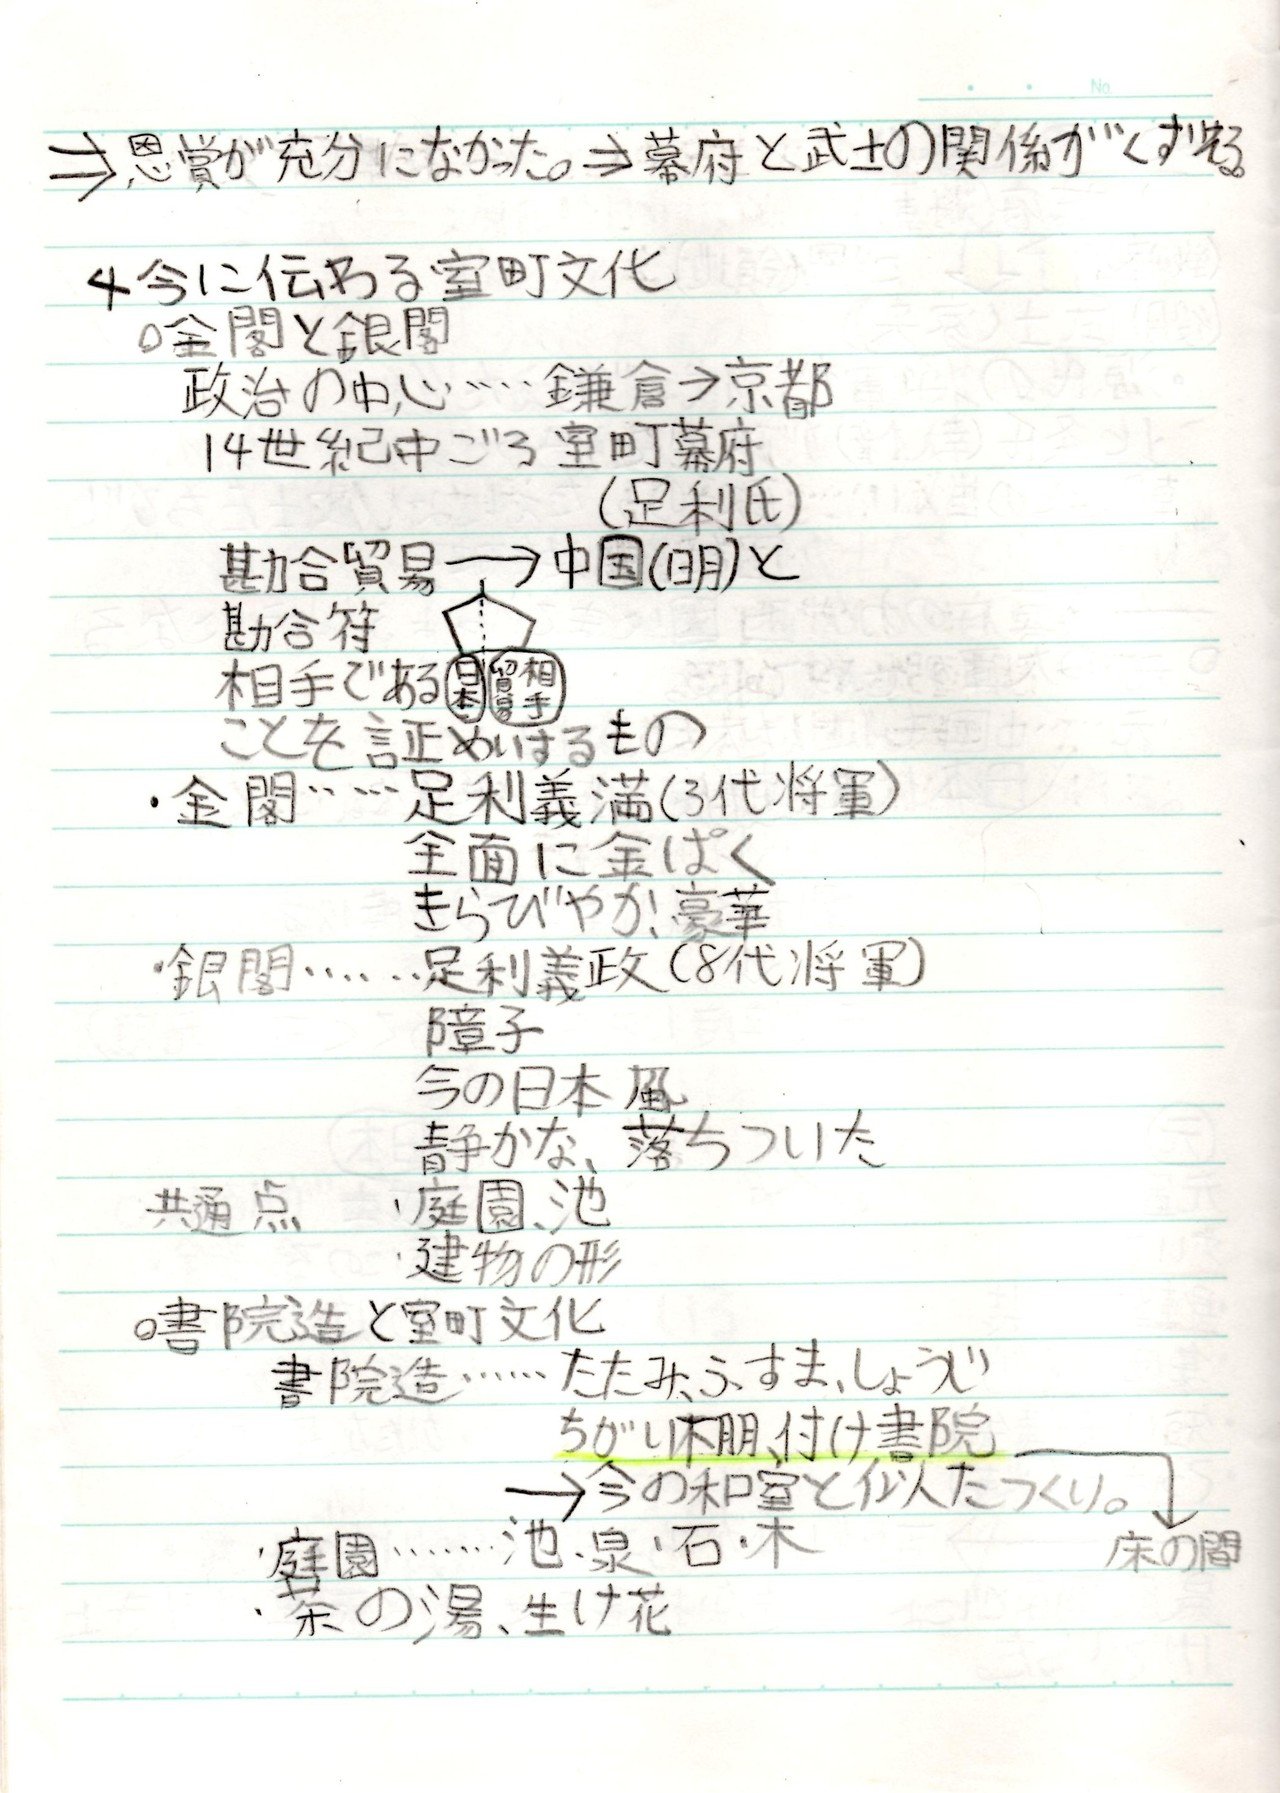 No
⇒恩賞が充分になかった。⇒幕府と武士の関係がくずれる。
4 今に伝わる室町文化
○金閣と銀閣
政治の中心……鎌倉→京都
14世紀中ごろ 室町幕府
(足利氏)
勘合貿易→中国(明)と
勘合符
相手である 日本 貿易 相手
ことを証明するもの
・金閣……足利義満(3代将軍)
全面に金ぱく
きらびやか、豪華
・銀閣……足利義政(8代将軍)
障子
今の日本風
静かな、落ちついた
共通点 ・庭園、池
・建物の形
○書院造と室町文化
書院造……たたみ、ふすま、しょうじ
ちがい棚、付け書院
→今の和室と似たつくり。
床の間
・庭園……池・泉・石・木
・茶の湯、生け花